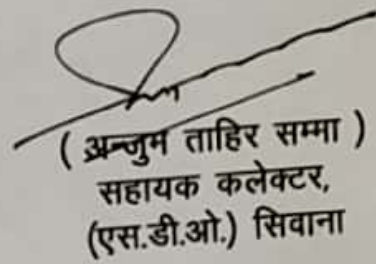 ( अन्जुम ताहिर सम्मा )
सहायक कलेक्टर,
(एस.डी.ओ.) सिवाना